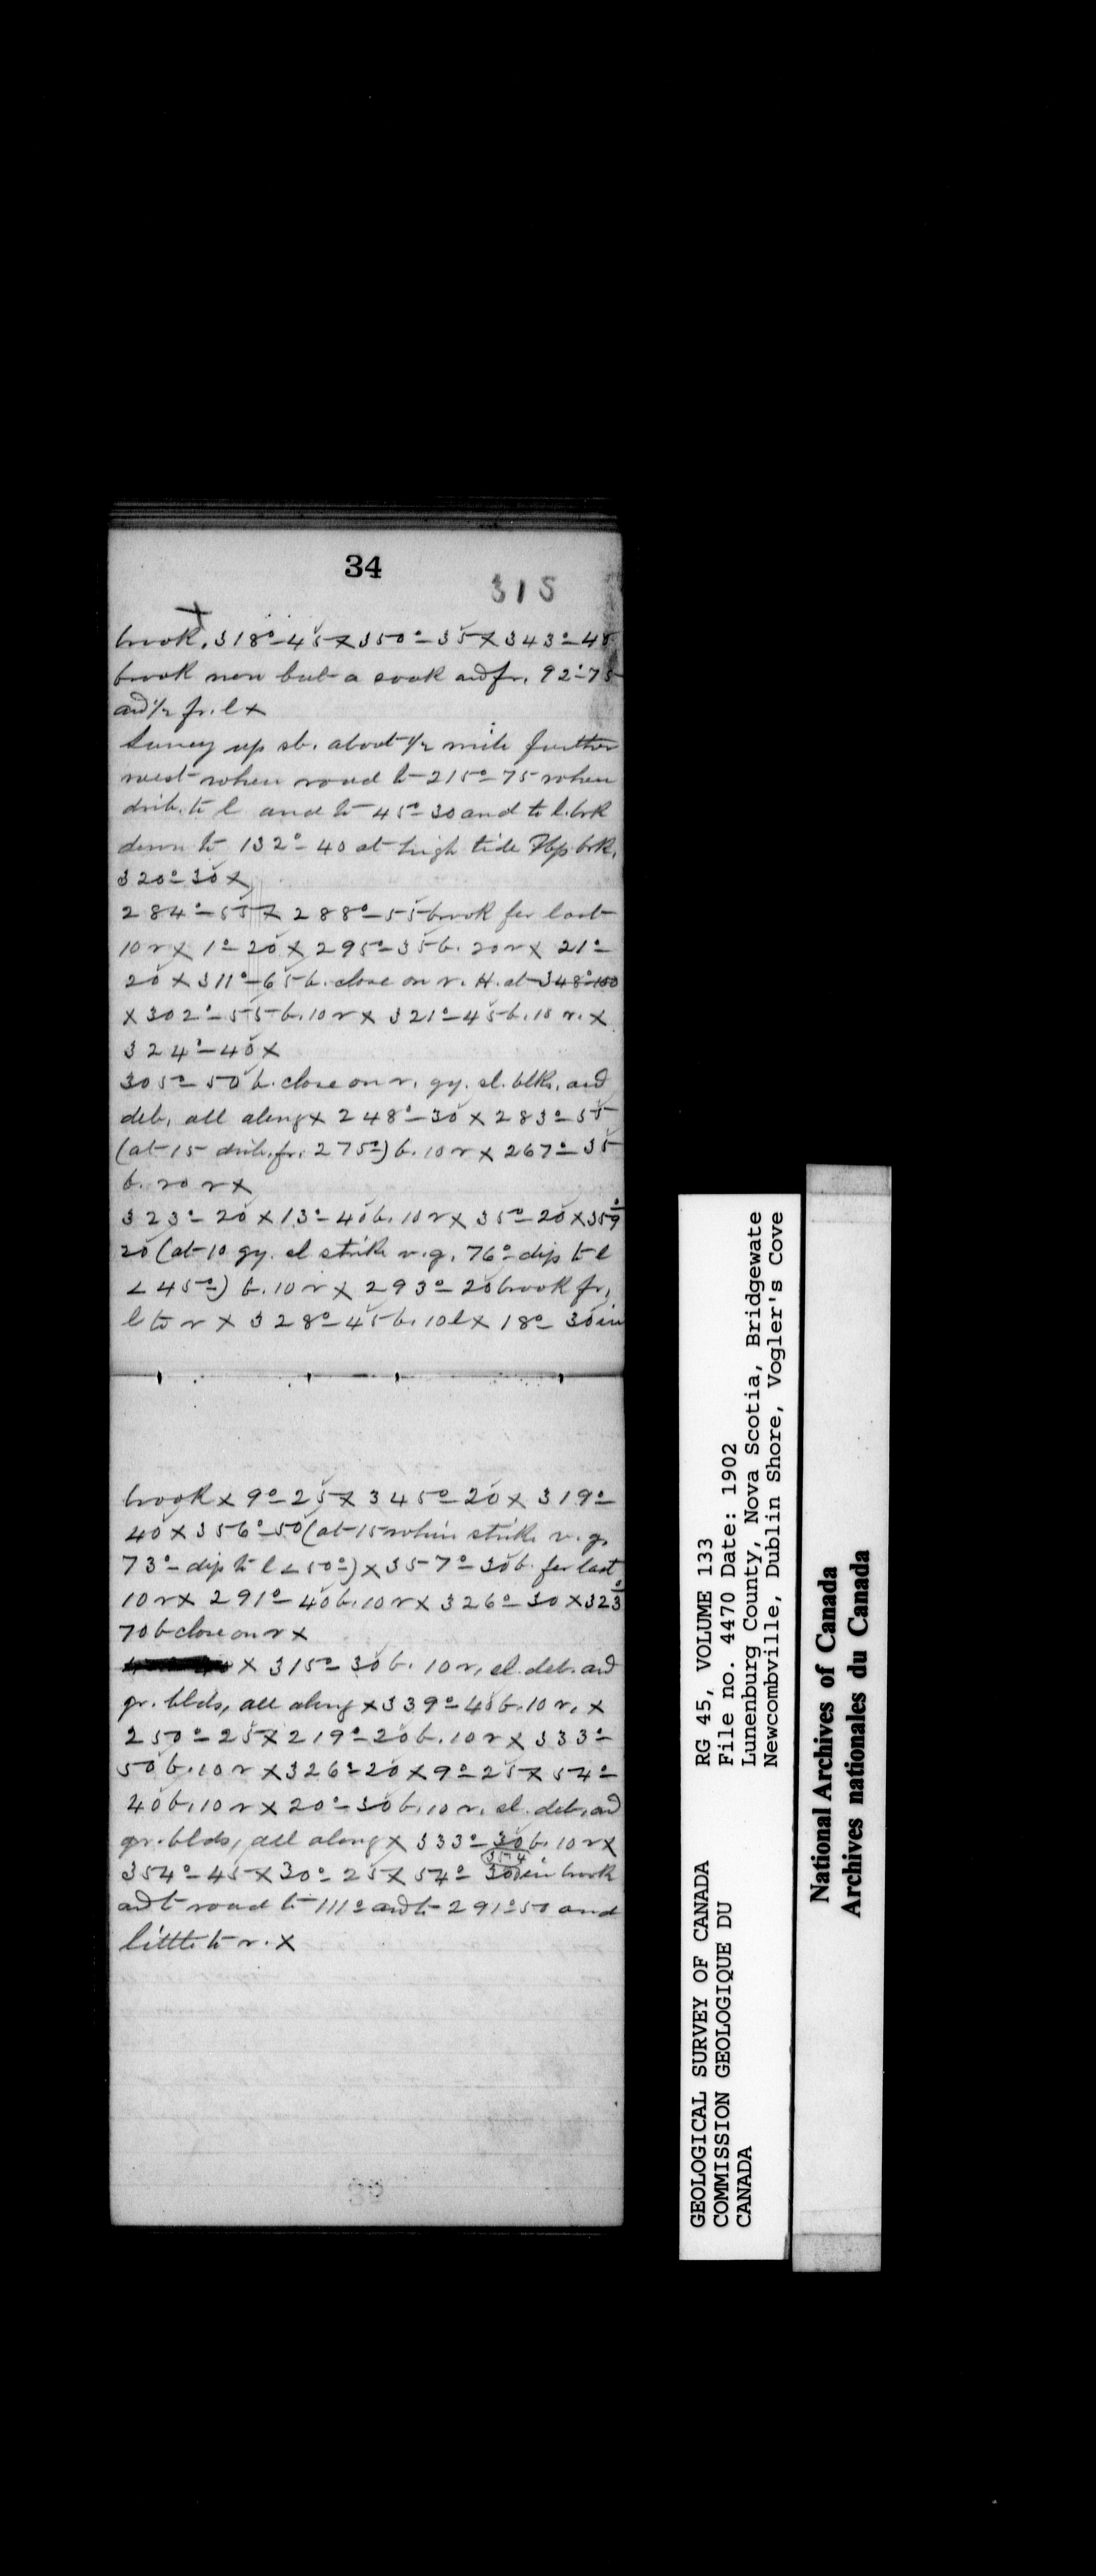 34
315
brook. 318°-45 x 350°-35 x 343°-45
brook now but a soak and fr. 92°-75
and ½ fr. l x
Survey up sb. about ½ mile further
west when road to 215°-75 when
drib. to l and to 45°-30 and to l. brk
down to 132°-40 at high tide brk.
320°-30 x
284°-55 x 288°-55 brook for last
10 r x 1°-20 x 295°-35 b. 20 r x 21°-
20 x 311°-65 b. close on r. H. at 348°-100
x 302°-55 b. 10 r x 321°-45 b. 10 r. x
324°-40 x
305°-50 b. close on r. gy. sl. blks. and
deb. all along x 248°-30 x 283°-55
(at 15 drib. fr. 275°) b. 10 r x 267°-35
b. 20 r x
323°-20 x 13°-40 b. 10 r x 35°-20 x 359°
20 (at 10 gy. sl strike v.g. 76° dip to l
∠ 45°) b. 10 r x 293°-20 brook fr.
l to r x 328°-45 b. 10 l x 18°-30 in
brook x 9°-25 x 345°-20 x 319°-
40 x 356°-50 (at 15 whin strike v.g.
73°- dip to l ∠ 50°) x 357°-30 b. for last
10 r x 291°-40 b. 10 r x 326°-30 x 323°
70 b close on r x
x 315°-30 b. 10 r, sl. deb. and
gr. blds, all along x 339°-40 b. 10 r. x
250°-25 x 219°-20 b. 10 r x 333°-
50 b. 10 r x 326°-20 x 9°-25 x 54°-
40 b. 10 r x 20°-30 b. 10 r. sl. deb. and
gr. blds, all along x 333°-30 b. 10 r x
354
354°-45 x 30°-25 x 54°-30 in brook
and to road to 111° and to 291°50 and
little to r. x
RG 45, VOLUME 133
File no. 4470 Date: 1902
Lunenburg County, Nova Scotia, Bridgewate
Newcombville, Dublin Shore, Vogler's Cove
GEOLOGICAL SURVEY OF CANADA
COMMISSION GEOLOGIQUE DU
CANADA
National Archives of Canada
Archives nationales du Canada